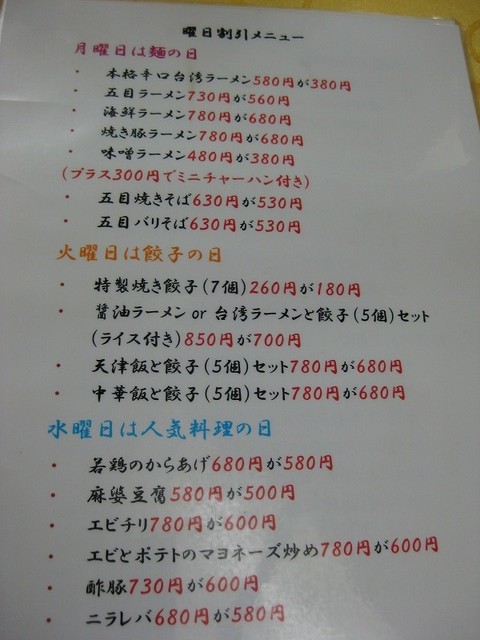 曜日割引メニュー
月曜日は麺の日
・ 本格辛口台湾ラーメン580円が380円
・ 五目ラーメン730円が560円
・ 海鮮ラーメン780円が680円
・ 焼き豚ラーメン780円が680円
・ 味噌ラーメン480円が380円
(プラス300円でミニチャーハン付き)
・ 五目焼きそば630円が530円
・ 五目バリそば630円が530円
火曜日は餃子の日
・ 特製焼き餃子(7個)260円が180円
・ 醤油ラーメン or 台湾ラーメンと餃子(5個)セット
(ライス付き)850円が700円
・ 天津飯と餃子(5個)セット780円が680円
・ 中華飯と餃子(5個)セット780円が680円
水曜日は人気料理の日
・ 若鶏のからあげ680円が580円
・ 麻婆豆腐580円が500円
・ エビチリ780円が600円
・ エビとポテトのマヨネーズ炒め780円が600円
・ 酢豚730円が600円
・ ニラレバ680円が580円